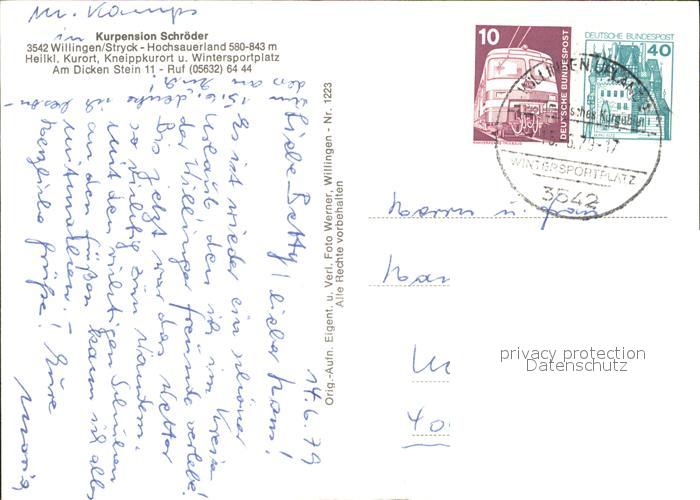 Mr. Kamps
in
Kurpension Schröder
3542 Willingen/Stryck - Hochsauerland 580-843 m
Heilkl. Kurort, Kneippkurort u. Wintersportplatz
Am Dicken Stein 11 - Ruf (05632) 64 44
14.6.79
Liebe Betty! lieber Hans!
Es ist wieder ein schöner
Urlaub den ich im Kreise
der Willinger Freunde verlebe!
Bis jetzt war das Wetter
so richtig zum Wandern.
mit den richtigen Schuhen
an den Füßen kann ich alles
mitmachen! -
Herzliche Grüße! Eure
Orig.-Aufn. Eigent. u. Verl. Foto Werner, Willingen - Nr. 1223
Alle Rechte vorbehalten
10
DEUTSCHE BUNDESPOST
DEUTSCHE BUNDESPOST
40
WILLINGEN (UPLAND)
.6.79-17
WINTERSPORTPLATZ
3542
Herrn u. Frau
privacy protection
Datenschutz
40